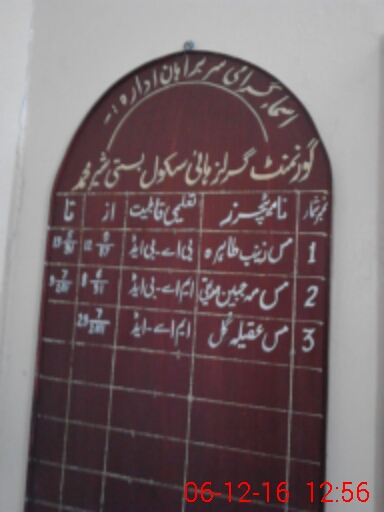 اسمائے گرامی سربراہان ادارہ:-
گورنمنٹ گرلز ہائی سکول بستی شیر محمد
نمبر شمار نام ٹیچرز تعلیمی قابلیت از تا
1 مس زینب طاہرہ بی اے - بی ایڈ
2 مس مہ جبین ایم اے - بی ایڈ
3 مس عقیلہ گل ایم اے - ایڈ
06-12-16 12:56